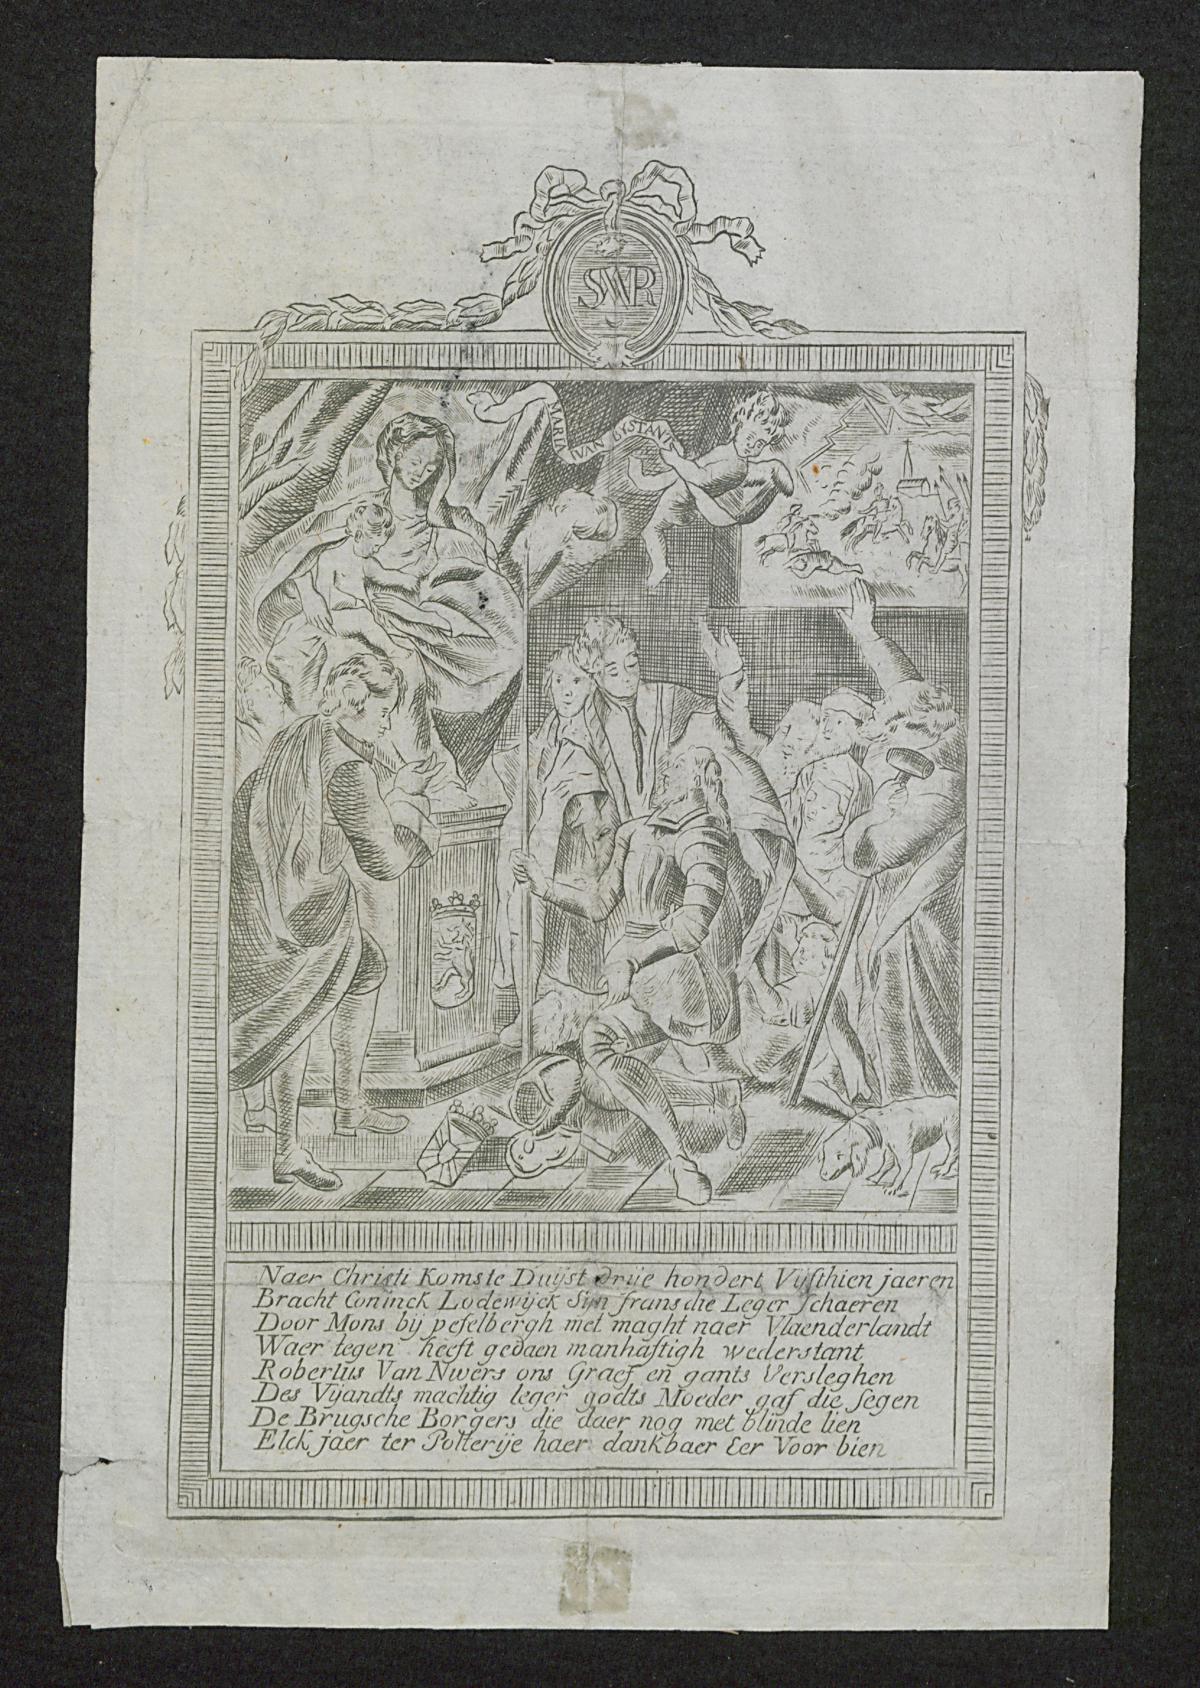 SWR
MARIA VAN BYSTAND
Naer Christi Komste Duijst drije hondert Vijfthien jaeren
Bracht Coninck Lodewijck Sijn fransche Leger schaeren
Door Mons bij peselbergh met maght naer Vlaenderlandt
Waer tegen heeft gedaen manhaftigh wederstant
Robertus Van Nwers ons Graef en gants Versleghen
Des Vijandts machtig leger godts Moeder gaf die segen
De Brugsche Borgers die daer nog met blinde lien
Elck jaer ter Potterije haer dankbaer Eer Voor bien